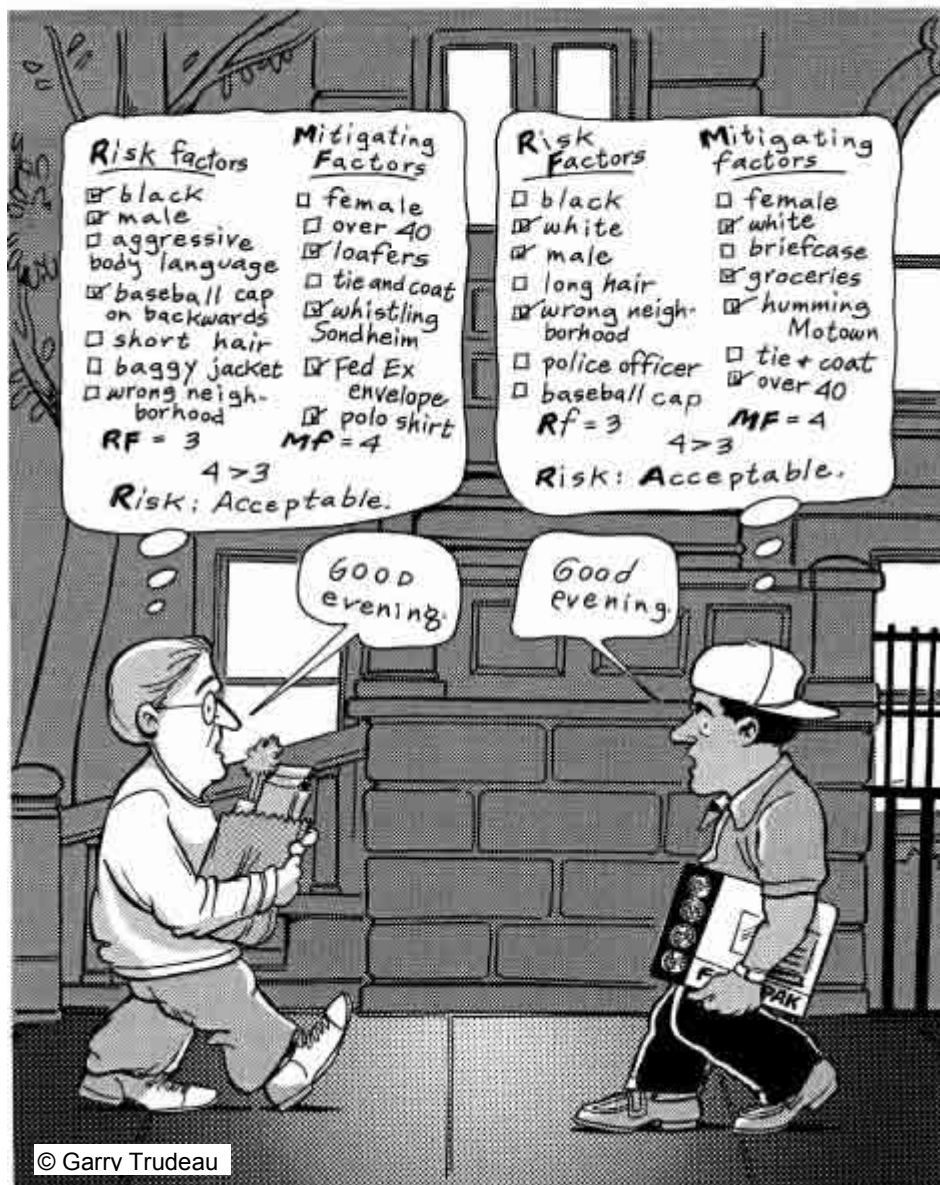 Risk factors
☑ black
☑ male
☐ aggressive
body language
☑ baseball cap
on backwards
☐ short hair
☐ baggy jacket
☐ wrong neigh-
borhood
RF = 3
Mitigating
Factors
☐ female
☐ over 40
☑ loafers
☐ tie and coat
☑ whistling
Sondheim
☑ Fed Ex
envelope
☑ polo shirt
MF = 4
4 > 3
Risk: Acceptable.
Risk
Factors
☐ black
☑ white
☑ male
☐ long hair
☑ wrong neigh-
borhood
☐ police officer
☐ baseball cap
Rf = 3
Mitigating
factors
☐ female
☑ white
☐ briefcase
☑ groceries
☑ humming
Motown
☐ tie + coat
☑ over 40
MF = 4
4 > 3
Risk: Acceptable.
GOOD
evening.
Good
evening.
PAK
© Garry Trudeau